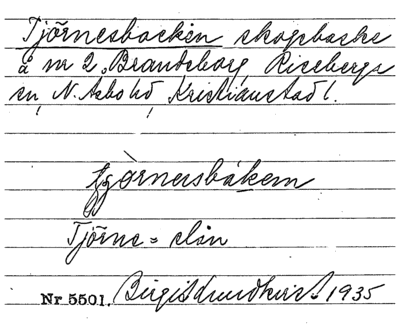 Tjörnesbacken skogsbacke
å nr 2 Brandeborg Riseberga
sn, N. Åsbo hd Kristianstad l.
Tjörne = elin
Nr 5501. Birgit Lundkvist 1935